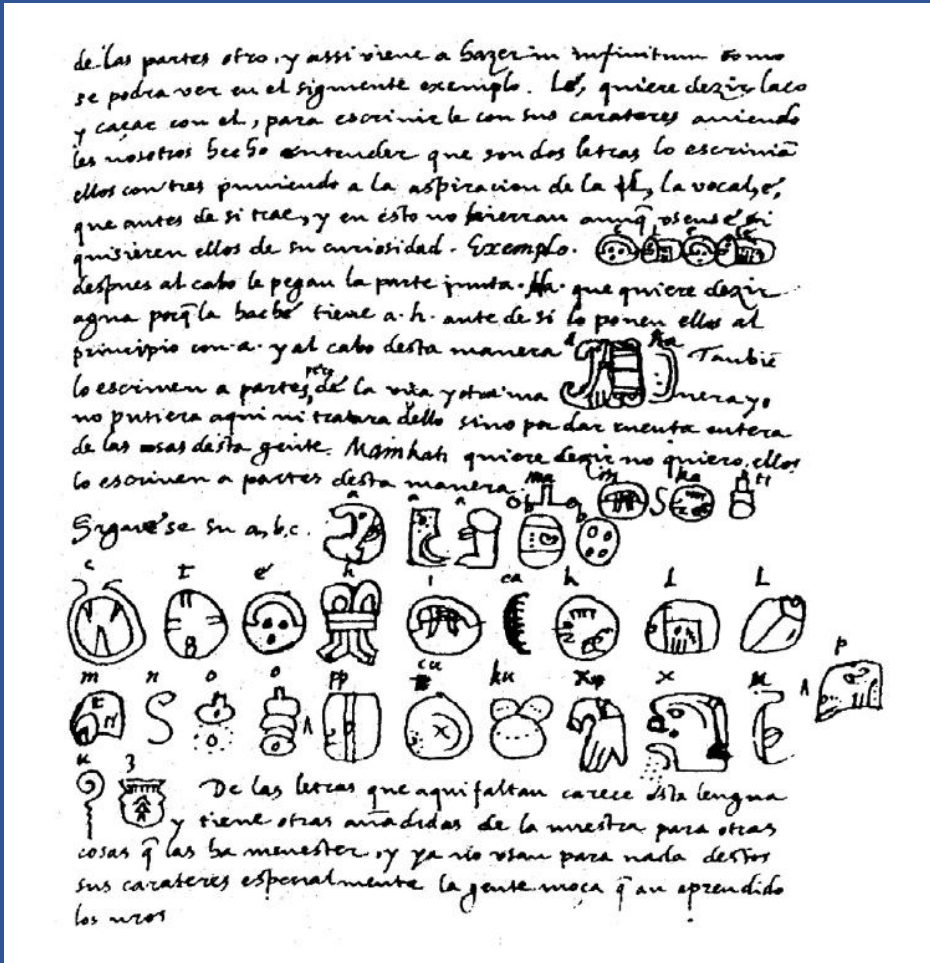 de las partes otro, y assi viene a hazer in infinitum como
se podra ver en el siguiente exemplo. Lé, quiere dezir laço
y caçar con el, para escrivirle con sus carateres aviendo
les nosotros hecho entender que son dos letras lo escrivian
ellos con tres puniendo a la aspiracion de la l, la vocal, é,
que antes de si trae, y en esto no hierran aunq̃ usense si
quisieren ellos de su curiosidad. Exemplo. e l e lé
despues al cabo le pegan la parte junta. Ha. que quiere dezir
agua porq̃ la hache tiene a. h. ante de si lo ponen ellos al
principio con a. y al cabo desta manera a ha Tambiẽ
lo escriven a partes, pero de la una y otra ma nera yo
no pusiera aqui ni tratara dello sino por dar cuenta entera
de las cosas desta gente. Mainkati quiere dezir no quiero, ellos
lo escriven a partes desta manera. ma i n ka ti
Siguese su a, b, c. a a a b b
c t é h i ca k l l
m n o o pp cu ku x x u p
u z De las letras que aqui faltan carece esta lengua
y tiene otras añadidas de la nuestra para otras
cosas q̃ las ha menester, y ya no usan para nada destos
sus carateres especialmente la gente moça q̃ an aprendido
los nros